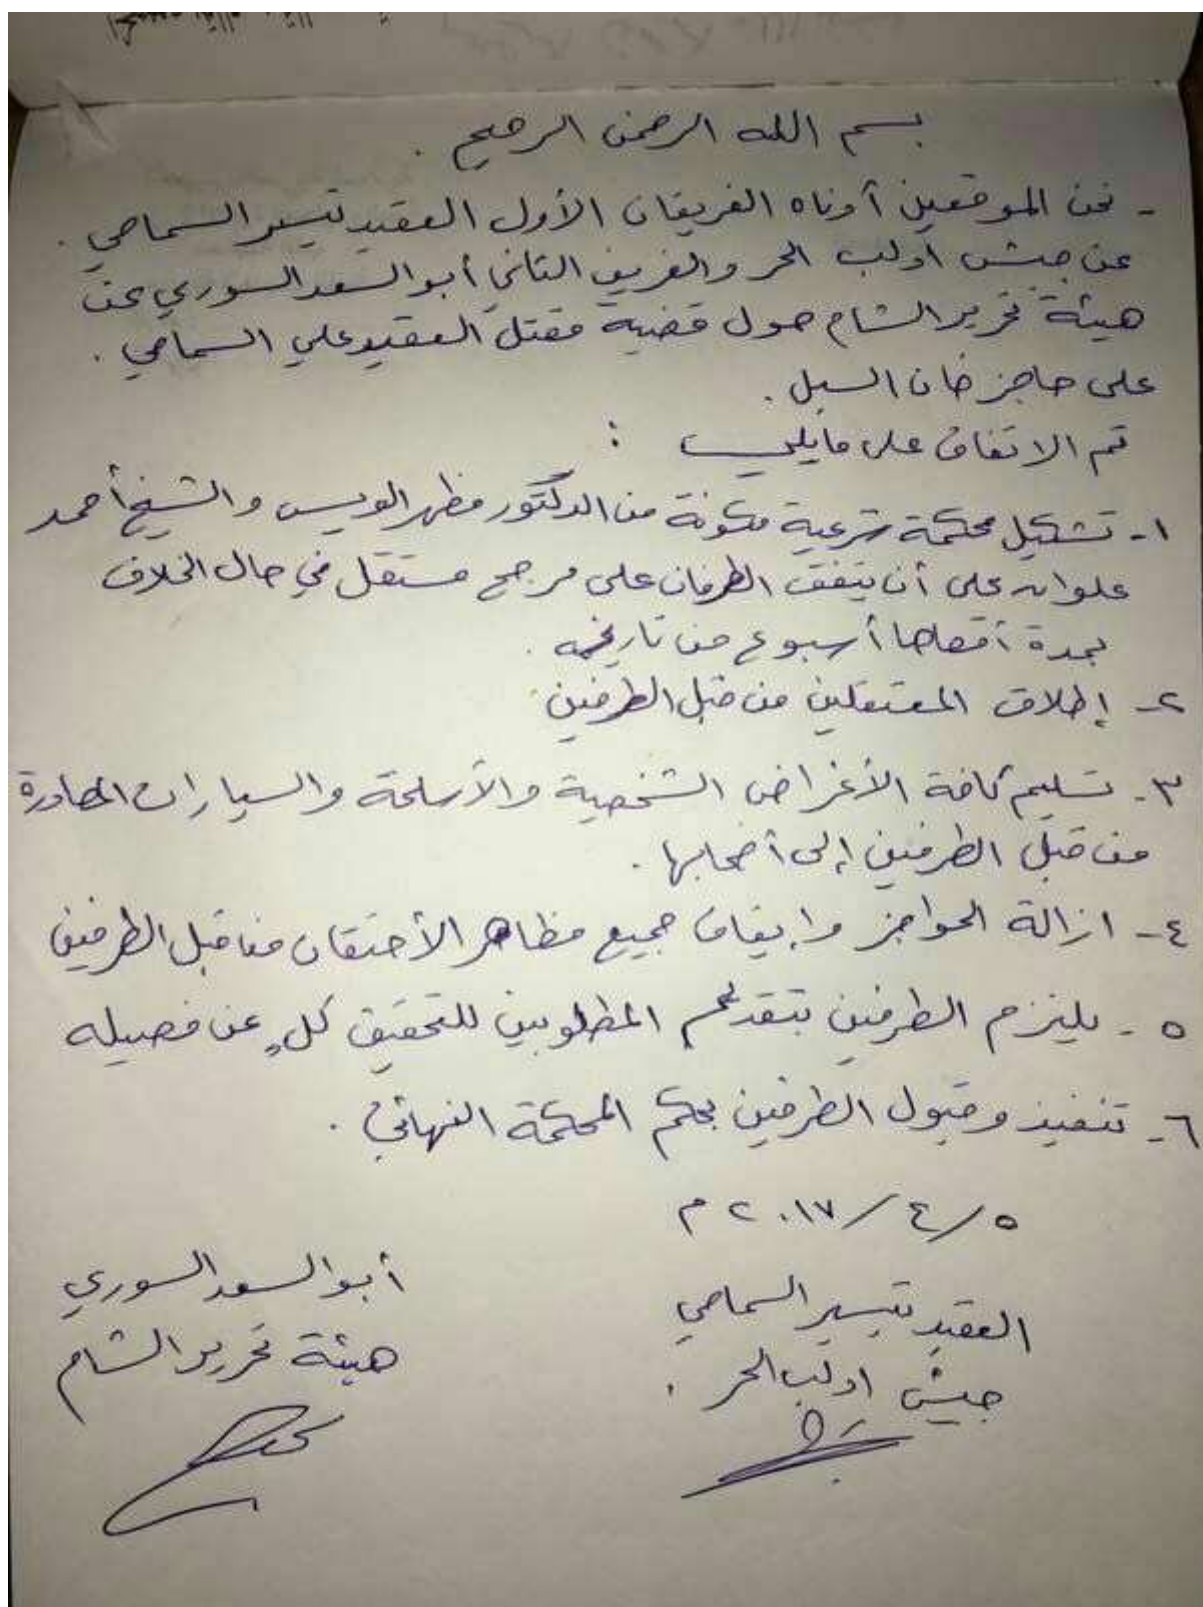 بسم الله الرحمن الرحيم .
- نحن الموقعين أدناه الفريقان الأول العقيد تيسير السماحي .
عن جيش ادلب الحر والفريق الثاني أبو السعد السوري عن
هيئة تحرير الشام حول قضية مقتل العقيد علي السماحي .
على حاجز خان السبل .
تم الاتفاق على مايلي :
١- تشكيل محكمة شرعية مكونة من الدكتور مظهر الويس والشيخ أحمد
علوان على أن يتفق الطرفان على مرجح مستقل في حال الخلاف
بمدة أقصاها أسبوع من تاريخه .
٢- إطلاق المعتقلين من قبل الطرفين .
٣- تسليم كافة الأغراض الشخصية والأسلحة والسيارات المصادرة
من قبل الطرفين إلى أصحابها .
٤- ازالة الحواجز وإيقاف جميع مظاهر الأحتقان من قبل الطرفين
٥- يلتزم الطرفين بتقديم المطلوبين للتحقيق كلٍ عن فصيله
٦- تنفيذ وقبول الطرفين بحكم المحكمة النهائي .
٥/٤/٢٠١٧ م
العقيد تيسير السماحي
جيش ادلب الحر .
أبو السعد السوري
هيئة تحرير الشام